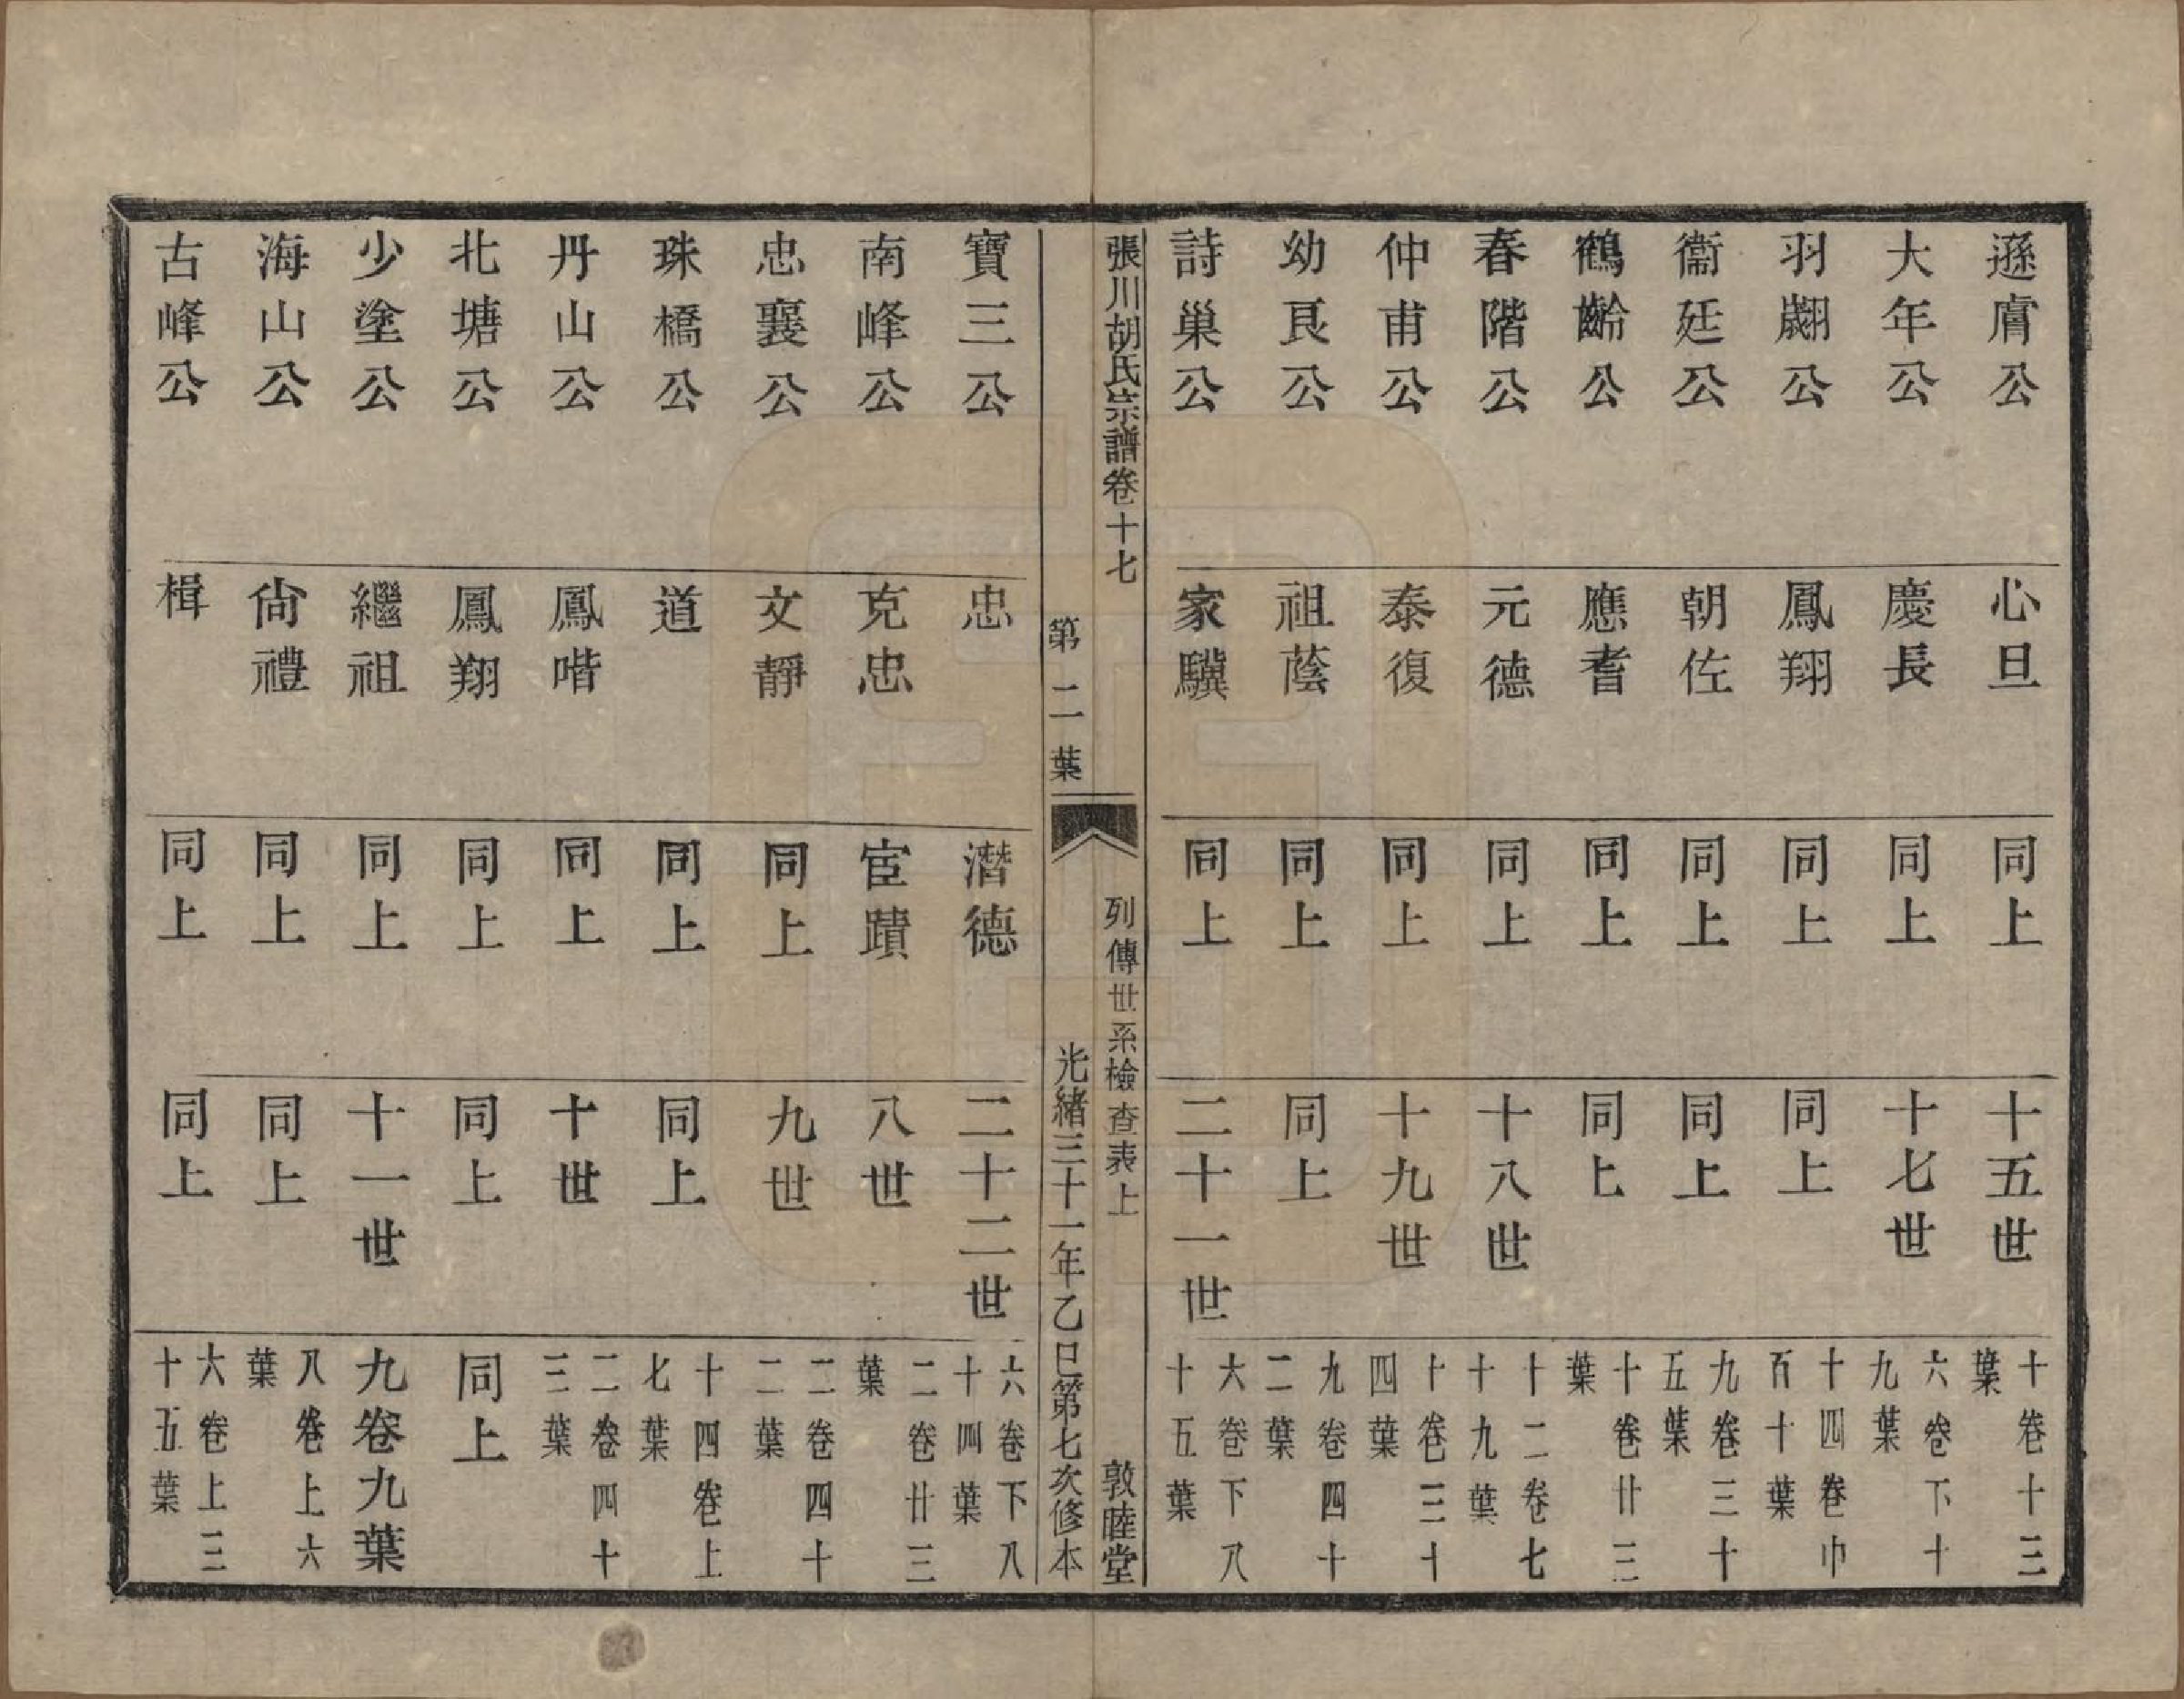 遜膚公 心旦 同上 十五世 十卷十三葉
大年公 慶長 同上 十七世 六卷下十九葉
羽翽公 鳳翔 同上 同上 十四卷中百十葉
衞廷公 朝佐 同上 同上 九卷三十五葉
鶴齡公 應耆 同上 同上 十卷廿三葉
春階公 元德 同上 十八世 十二卷七十九葉
仲甫公 泰復 同上 十九世 十卷三十四葉
幼艮公 祖蔭 同上 同上 九卷四十二葉
詩巢公 家驥 同上 二十一世 六卷下八十五葉
張川胡氏宗譜卷十七 列傳世系檢查表上 敦睦堂
第二葉 光緒三十一年乙巳第七次修本
寶三公 忠 潛德 二十二世 六卷下八十四葉
南峰公 克忠 宦蹟 八世 二卷廿三葉
忠襄公 文靜 同上 九世 二卷四十二葉
珠橋公 道 同上 同上 十四卷上七葉
丹山公 鳳喈 同上 十世 二卷四十三葉
北塘公 鳳翔 同上 同上 同上
少塗公 繼祖 同上 十一世 九卷九葉
海山公 尙禮 同上 同上 八卷上六葉
古峰公 楫 同上 同上 六卷上三十五葉